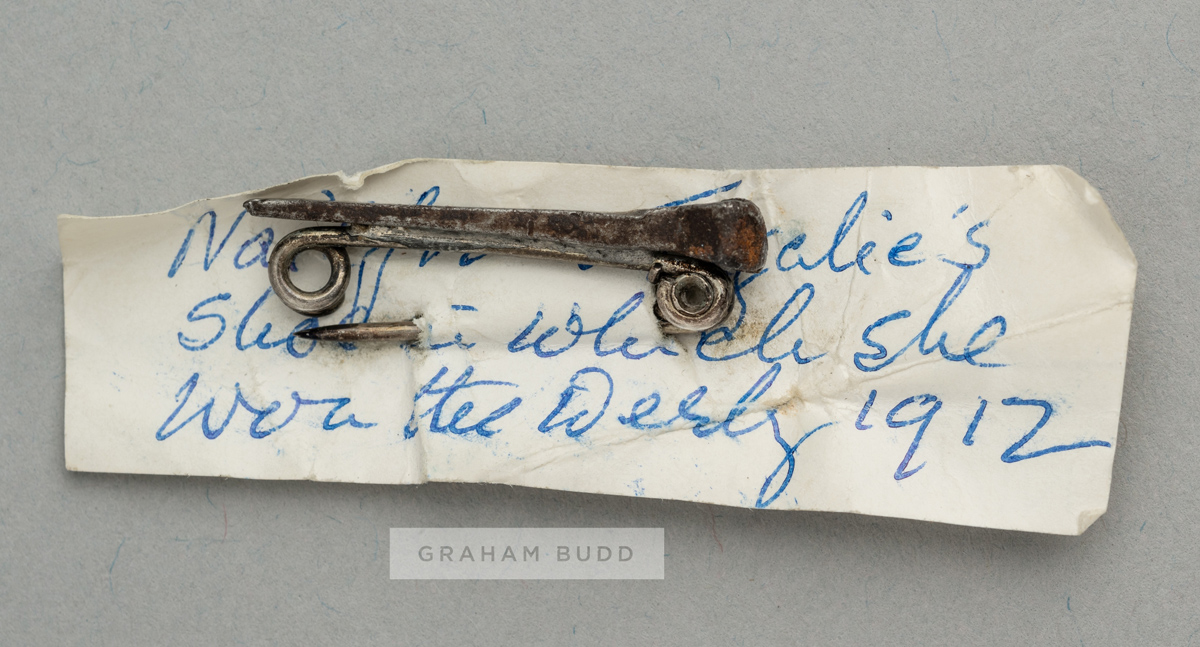 Nail from Tagalie's
Shoe in which she
Won the Derby 1912
GRAHAM BUDD